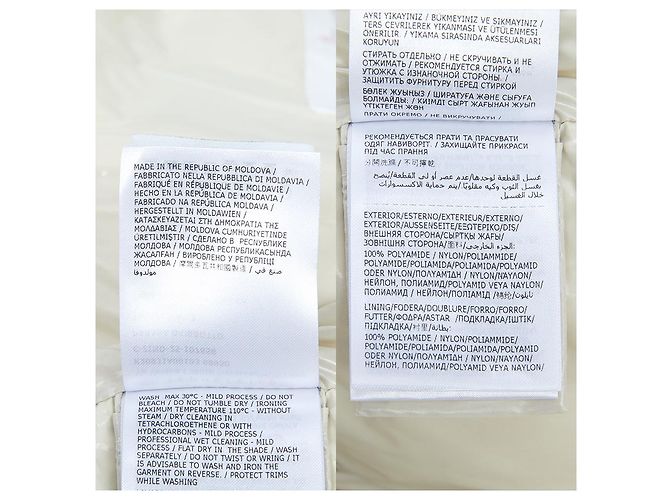 MADE IN THE REPUBLIC OF MOLDOVA /
FABBRICATO NELLA REPUBBLICA DI MOLDAVIA /
FABRIQUÉ EN RÉPUBLIQUE DE MOLDAVIE /
HECHO EN LA REPÚBLICA DE MOLDAVIA /
FABRICADO NA REPÚBLICA MOLDAVA /
HERGESTELLT IN MOLDAWIEN /
ΚΑΤΑΣΚΕΥΑΖΕΤΑΙ ΣΤΗ ΔΗΜΟΚΡΑΤΙΑ ΤΗΣ
ΜΟΛΔΑΒΙΑΣ / MOLDOVA CUMHURIYETINDE
ÜRETİLMİŞTİR / СДЕЛАНО В РЕСПУБЛИКЕ
МОЛДОВА / МОЛДОВА РЕСПУБЛИКАСЫНДА
ЖАСАЛҒАН / ВИРОБЛЕНО У РЕПУБЛІЦІ
МОЛДОВА / 摩爾多瓦共和國製造 / صنع في
مولدوفا
WASH MAX 30°C - MILD PROCESS / DO NOT
BLEACH / DO NOT TUMBLE DRY / IRONING
MAXIMUM TEMPERATURE 110°C - WITHOUT
STEAM / DRY CLEANING IN
TETRACHLOROETHENE OR WITH
HYDROCARBONS - MILD PROCESS /
PROFESSIONAL WET CLEANING - MILD
PROCESS / FLAT DRY IN THE SHADE / WASH
SEPARATELY / DO NOT TWIST OR WRING / IT
IS ADVISABLE TO WASH AND IRON THE
GARMENT ON REVERSE. / PROTECT TRIMS
WHILE WASHING
AYRI YIKAYINIZ / BÜKMEYINIZ VE SIKMAYINIZ /
TERS ÇEVRILEREK YIKANMASI VE ÜTÜLENMESI
ÖNERILIR. / YIKAMA SIRASINDA AKSESUARLARI
KORUYUN
СТИРАТЬ ОТДЕЛЬНО / НЕ СКРУЧИВАТЬ И НЕ
ОТЖИМАТЬ / РЕКОМЕНДУЕТСЯ СТИРКА И
УТЮЖКА С ИЗНАНОЧНОЙ СТОРОНЫ. /
ЗАЩИТИТЬ ФУРНИТУРУ ПЕРЕД СТИРКОЙ
БӨЛЕК ЖУЫҢЫЗ / ШИРАТУҒА ЖӘНЕ СЫҒУҒА
БОЛМАЙДЫ. / КИІМДІ СЫРТ ЖАҒЫНАН ЖУЫП
ҮТІКТЕГЕН ЖӨН
ПРАТИ ОКРЕМО / НЕ ВИКРУЧУВАТИ /
РЕКОМЕНДУЄТЬСЯ ПРАТИ ТА ПРАСУВАТИ
ОДЯГ НАВИВОРІТ. / ЗАХИЩАЙТЕ ПРИКРАСИ
ПІД ЧАС ПРАННЯ
分開洗滌 / 不可擰乾
غسل القطعة لوحدها/عدم عصر أو لي القطعة/يُنصح
بغسل الثوب وكيه مقلوبًا/يتم حماية الاكسسوارات
خلال الغسيل
EXTERIOR/ESTERNO/EXTERIEUR/EXTERNO/
EXTERIOR/AUSSENSEITE/ΕΞΩΤΕΡΙΚΟ/DIŞ/
ВНЕШНЯЯ СТОРОНА/СЫРТҚЫ ЖАҒЫ/
ЗОВНІШНЯ СТОРОНА/面料/الجزء الخارجي:
100% POLYAMIDE / NYLON/POLIAMMIDE/
POLYAMIDE/POLIAMIDA/POLIAMIDA/POLYAMID
ODER NYLON/ΠΟΛΥΑΜΙΔΗ / NYLON/NAYLON/
НЕЙЛОН, ПОЛИАМИД/POLYAMID VEYA NAYLON/
ПОЛИАМИД / НЕЙЛОН/ПОЛІАМІД /錦纶/نايلون/
LINING/FODERA/DOUBLURE/FORRO/FORRO/
FUTTER/ΦΟΔΡΑ/ASTAR /ПОДКЛАДКА/ІШТІК/
ПІДКЛАДКА/衬里/بطانة:
100% POLYAMIDE / NYLON/POLIAMMIDE/
POLYAMIDE/POLIAMIDA/POLIAMIDA/POLYAMID
ODER NYLON/ΠΟΛΥΑΜΙΔΗ / NYLON/NAYLON/
НЕЙЛОН, ПОЛИАМИД/POLYAMID VEYA NAYLON/